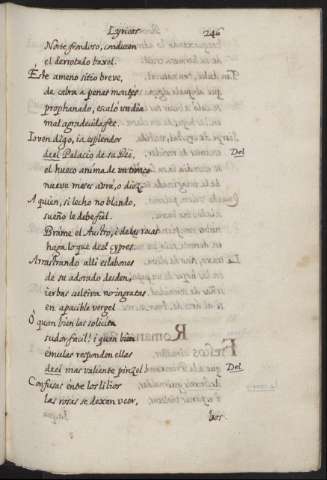 Lyricas. 246
Norte frondoso, conducen
el derrotado baxel.
Este ameno sitio breve,
de cabra a penas montes
prophanado, escaló un dia
mal agradecida fee.
Ioven digo, ia esplendor
de el Palacio de su Rei, Del
el hueco anima de un tronco
nueve meses avrá, o diez.
A quien, si lecho no blando,
sueño le debe fiel.
Brame el Austro, i de las rocas
haga lo que de el cypres.
Arrastrando alli eslabones
de su adorado desden,
ierbas cultiva no ingratas
en apacible vergel.
O quan bien las solicita
sudor facil! i quan bien
emulas responden ellas
de el mas valiente pinzel Del
Confusas entre los lilios
las rosas se dexan veer,
bos.